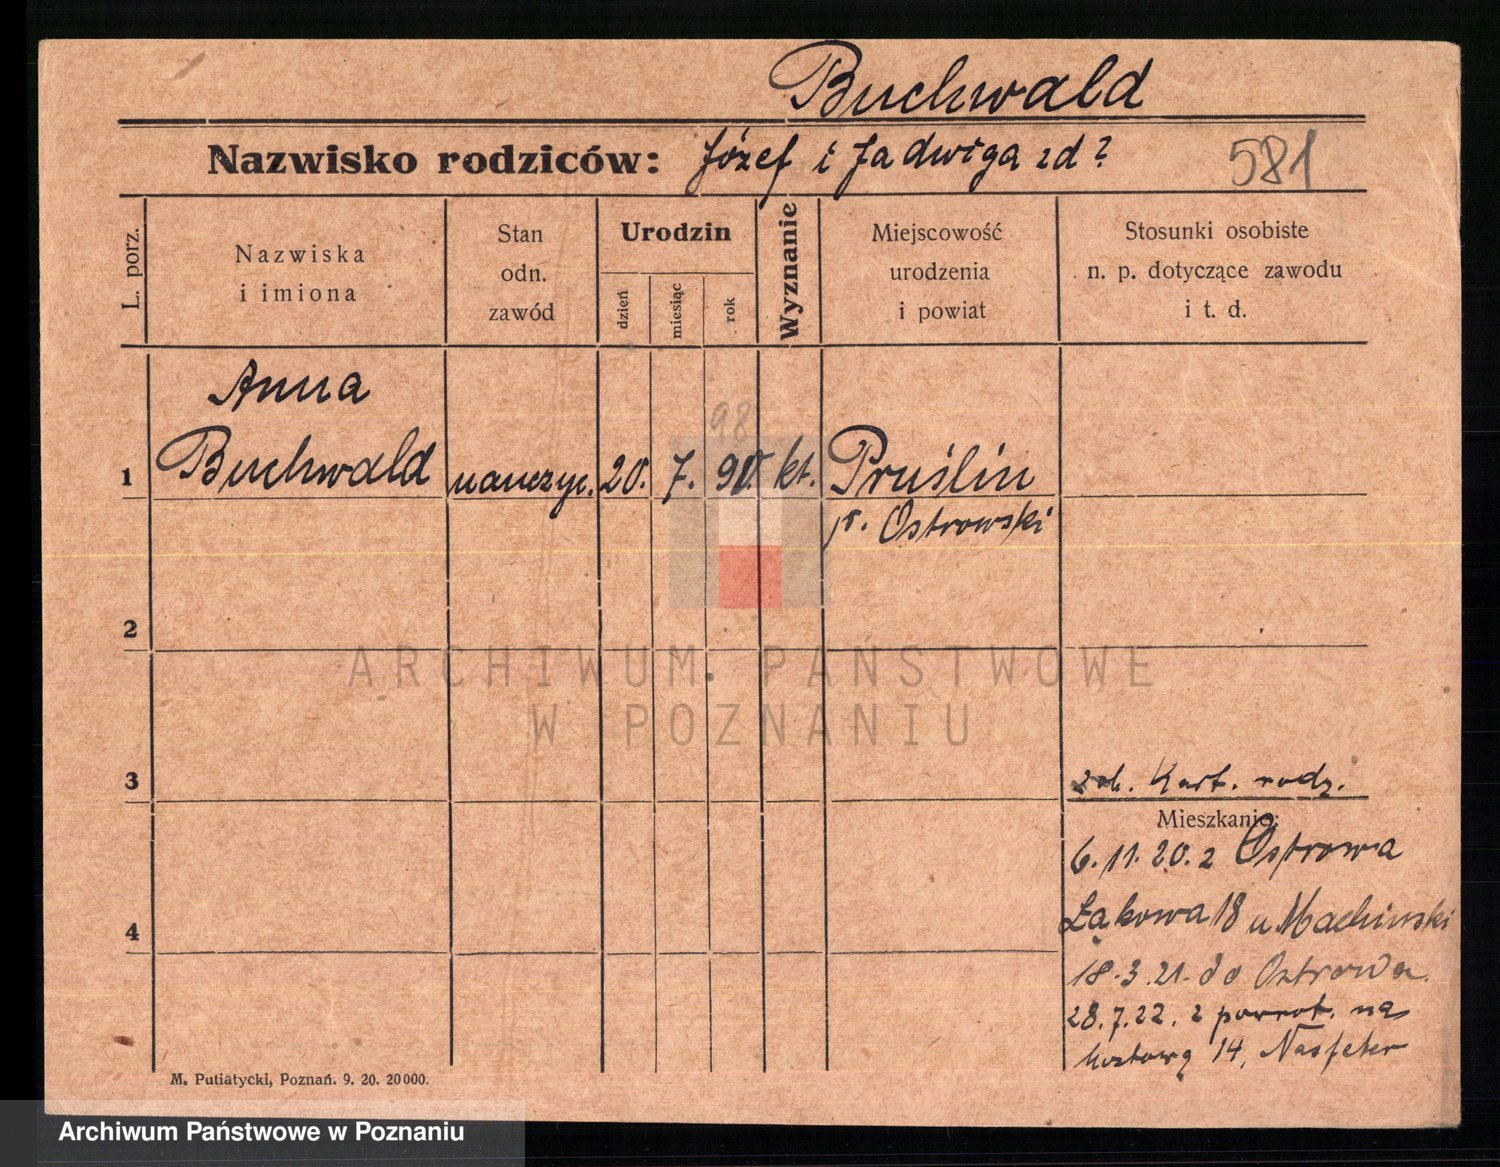 Buchwald
Nazwisko rodziców: Józef i Jadwiga zd?
581
L. porz.
Nazwiska
i imiona
Stan
odn.
zawód
Urodzin
dzień
miesiąc
rok
Wyznanie
Miejscowość
urodzenia
i powiat
Stosunki osobiste
n. p. dotyczące zawodu
i t. d.
Anna
98
1 Buchwald nauczyc. 20. 7. 90. kt. Pruślin
p. Ostrowski
2
ARCHIWUM PAŃSTWOWE
W POZNANIU
3
zob. Kart. rodz.
Mieszkanie:
6.11.20. z Ostrowa
Łąkowa 18 u Machinski
4
18.3.21. do Ostrowa.
28.7.22. z powrot. na
Mostową 14, Nasfeter
M. Putiatycki, Poznań. 9. 20. 20000.
Archiwum Państwowe w Poznaniu